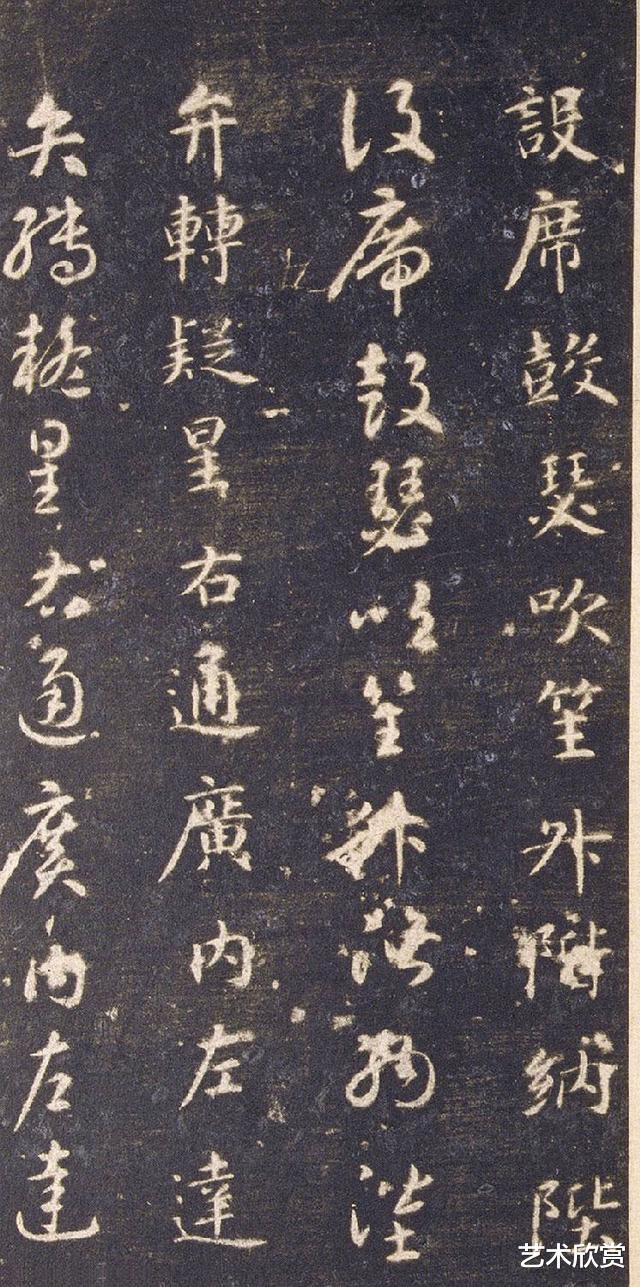 設席鼓瑟吹笙升階納陛
設席鼓瑟吹笙升階納陛
弁轉疑星右通廣内左達
弁轉疑星右通廣内左達
艺术欣赏